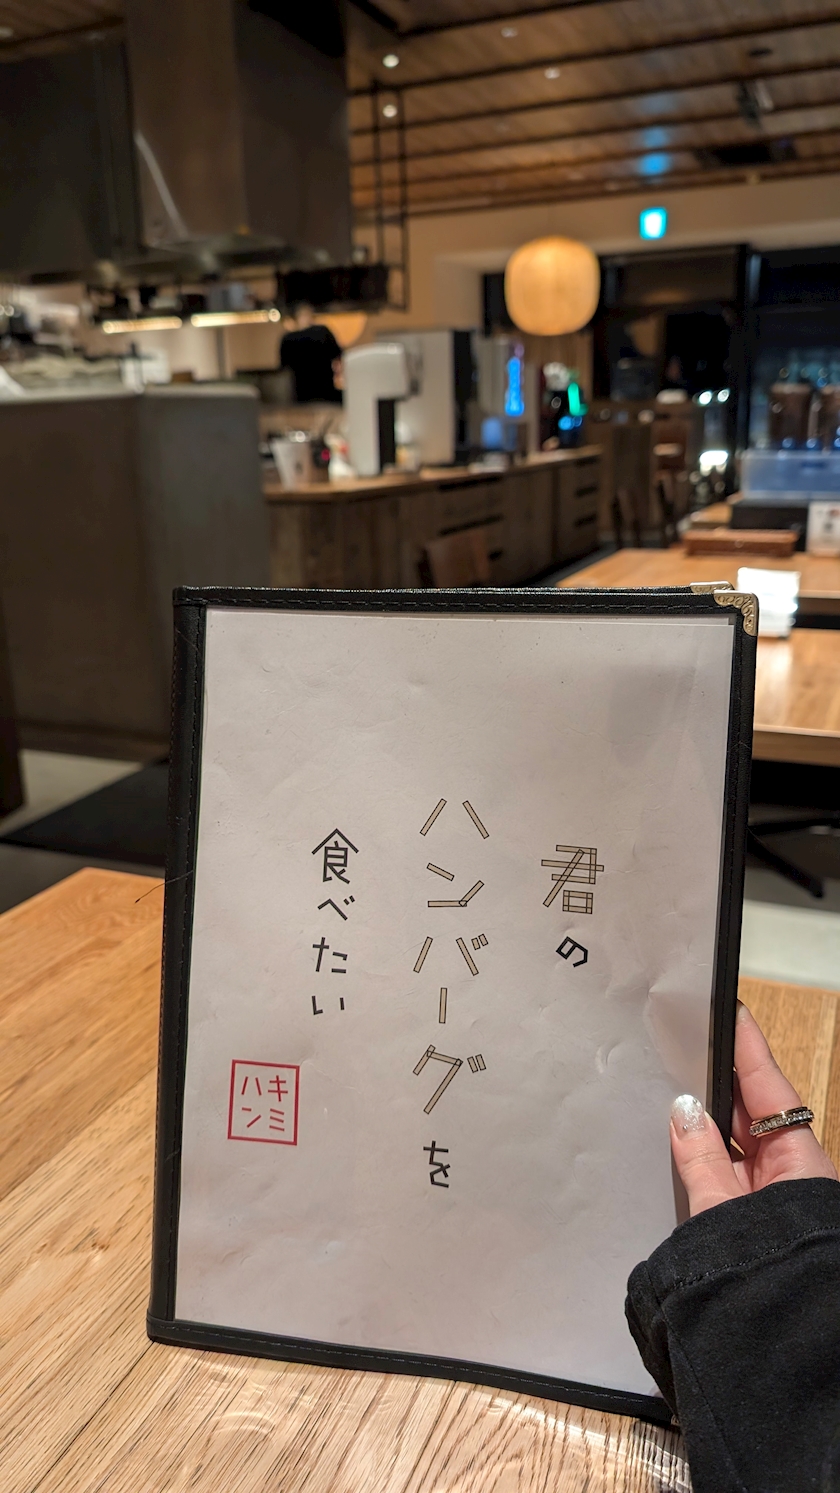 君の
ハンバーグを
食べたい
キミ
ハン